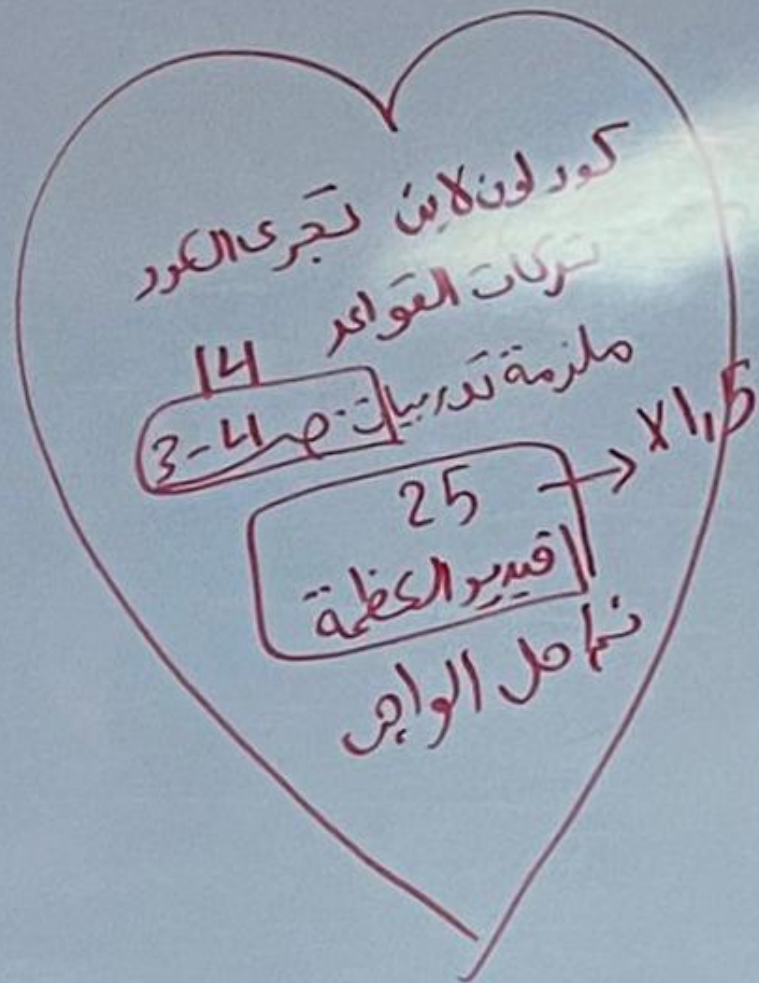 كود اون لاين تجرى الكود
تركات القواعد
14
ملزمة تدريبات ص 4-3
25 → x1,5
فيديو العظمة
نماحل الواجب